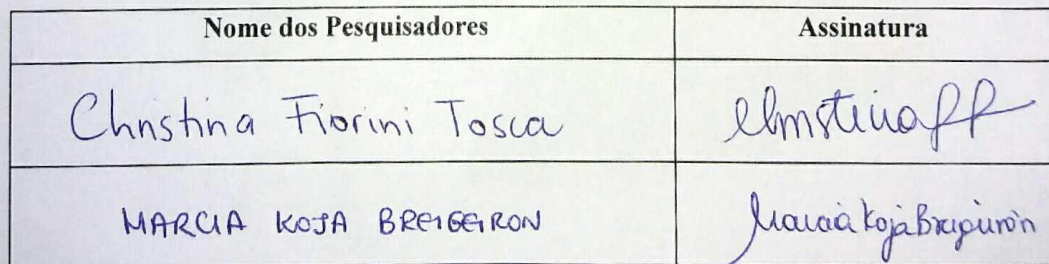 Nome dos Pesquisadores Assinatura
Christina Fiorini Tosca
MARCIA KOJA BREIGEIRON Marcia Koja Breigeiron